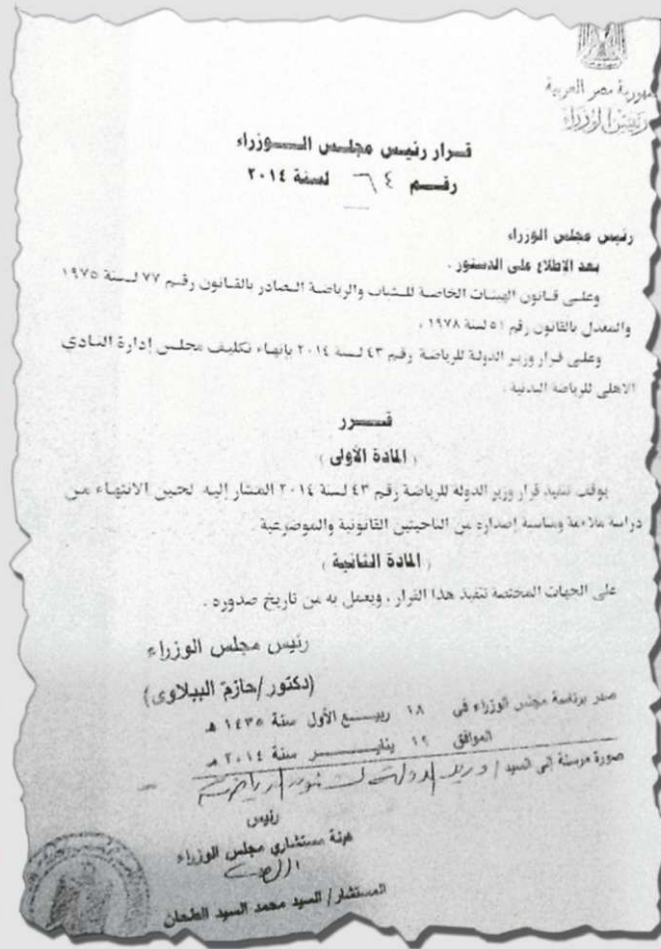 جمهورية مصر العربية
رئيس الوزراء
قــرار رئيس مجلس الــوزراء
رقــم ٦٤ لسنة ٢٠١٤
رئيس مجلس الوزراء
بعد الإطلاع على الدستور .
وعلــى قــانون الهيئــات الخاصــة للــشباب والرياضــة الــصادر بالقــانون رقــم ٧٧ لــسنة ١٩٧٥
والمعدل بالقانون رقم ٥١ لسنة ١٩٧٨ ،
وعلــى قــرار وزيــر الدولــة للرياضــة رقــم ٤٣ لــسنة ٢٠١٤ بإنهــاء تكليــف مجلــس إدارة النــادي
الاهلى للرياضة البدنية .
قــــرر
( المادة الأولى )
يوقف تنفيذ قرار وزير الدولة للرياضة رقم ٤٣ لسنة ٢٠١٤ المشار إليه لحين الانتهاء من
دراسة ملاءمة ومناسبة إصداره من الناحيتين القانونية والموضوعية
( المادة الثانية )
على الجهات المختصة تنفيذ هذا القرار ، ويعمل به من تاريخ صدوره .
رئيس مجلس الوزراء
(دكتور/حازم الببلاوى)
صدر برئاسة مجلس الوزراء فى ١٨ ربيــع الأول سنة ١٤٣٥ هـ
الموافق ١٩ ينايــــر سنة ٢٠١٤ مـ
صورة مرسلة إلى السيد / وزير الدولة لشئون الرياضة
رئيس
هيئة مستشاري مجلس الوزراء
المستشار/ السيد محمد السيد الطحان